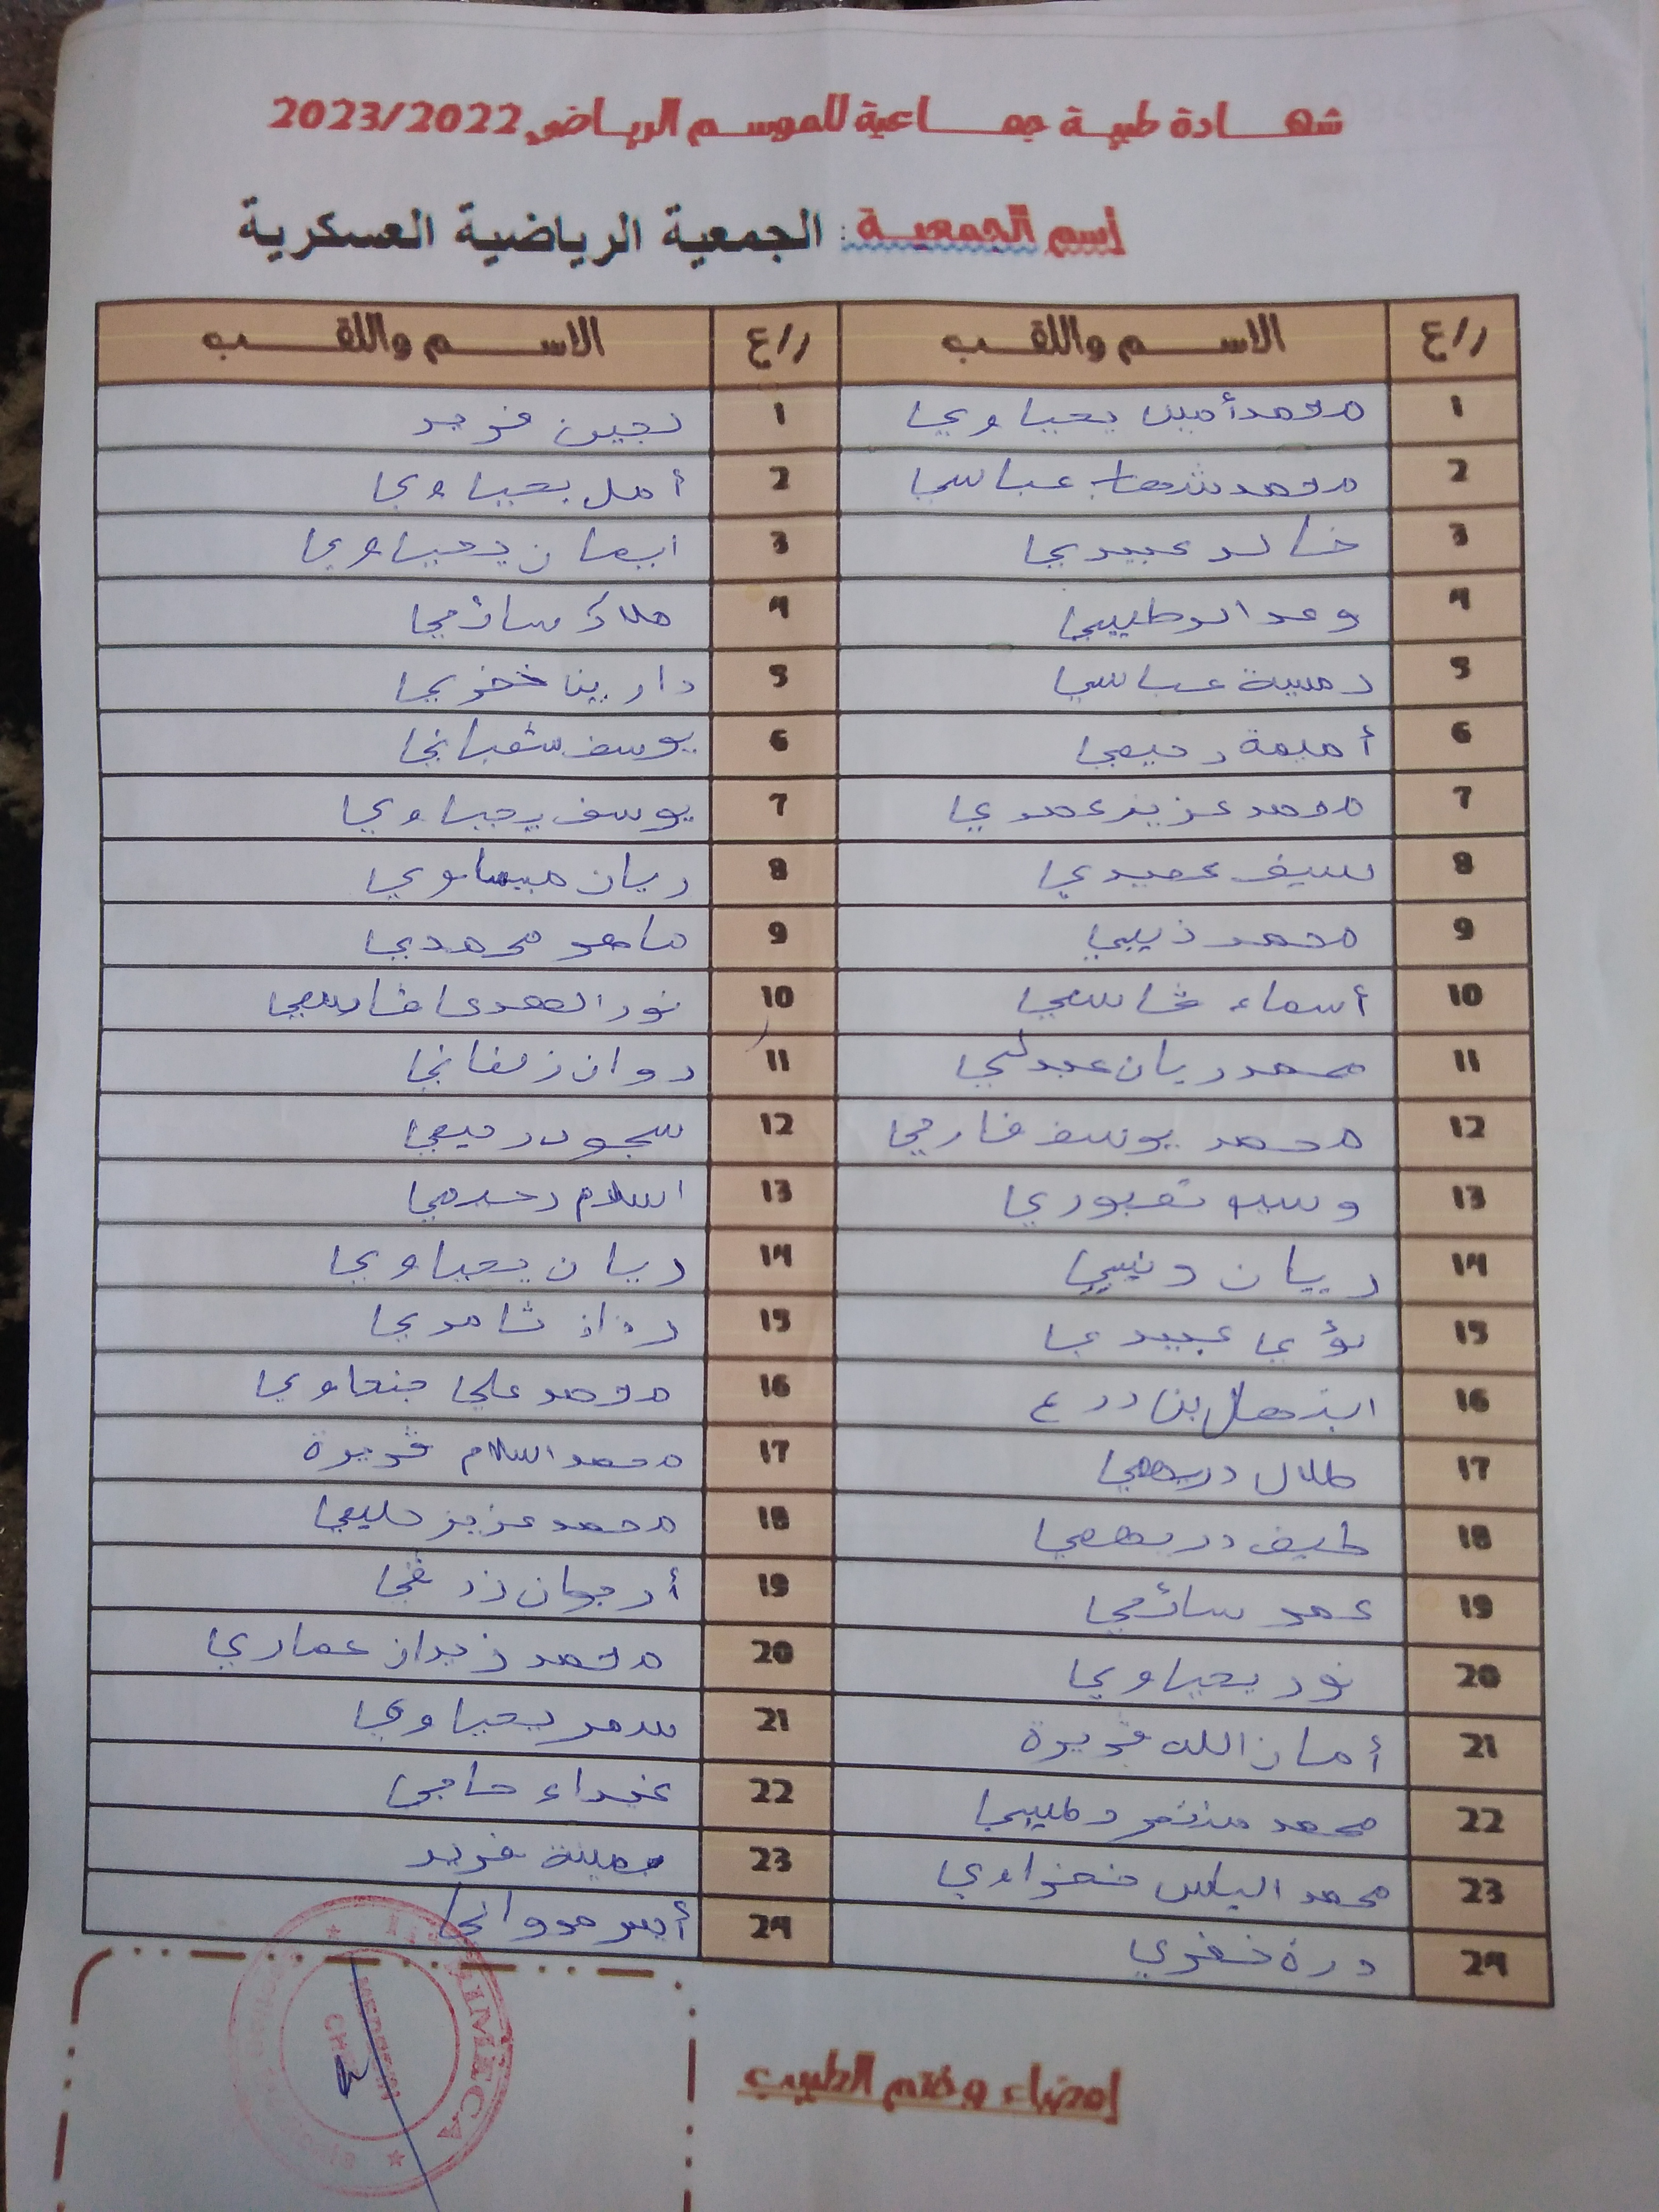 شهادة طبية جماعية للموسم الرياضي 2023/2022
إسم الجمعية: الجمعية الرياضية العسكرية
ر/ع الاسم واللقب ر/ع الاسم واللقب
1 محمد أمين يحياوي 1 لجين فريد
2 محمد شهاب عباسي 2 أمل يحياوي
3 خالد عبيدي 3 ايمان يحياوي
4 وعد الدطيبي 4 ملاك سائمي
5 دمسة عباسي 5 دارينا خضري
6 أميمة رحيمي 6 يوسف شعباني
7 محمد عزيز عمدي 7 يوسف يحياوي
8 سيف عميدي 8 ريان ميساوي
9 محمد ذيبي 9 ماهر محمدي
10 أسماء قاسمي 10 نور الهدى قاسمي
11 محمد ريان عبدلي 11 روان زلفاني
12 محمد يوسف فارحي 12 سجود رحيمي
13 قبوري 13 اسلام رحيمي
14 ريان دنيبي 14 ريان يحياوي
15 لؤي عبيدي 15 تامري
16 ابتهال بن درع 16 محمد علي جنحاوي
17 طلال دريهمي 17 محمد اسلام قريرة
18 طيف دريهمي 18 محمد عزيز حليمي
19 عمر سائمي 19 أرجوان زرقي
20 نور يحياوي 20 محمد زيدان عماري
21 أمان الله قريرة 21 سمر يحياوي
22 محمد منتصر دطيبي 22 غيداء حاجي
23 محمد الياس خضراوي 23 يمينة فريد
24 درة خضري 24 أيسر مرواني
إمضاء وختم الطبيب